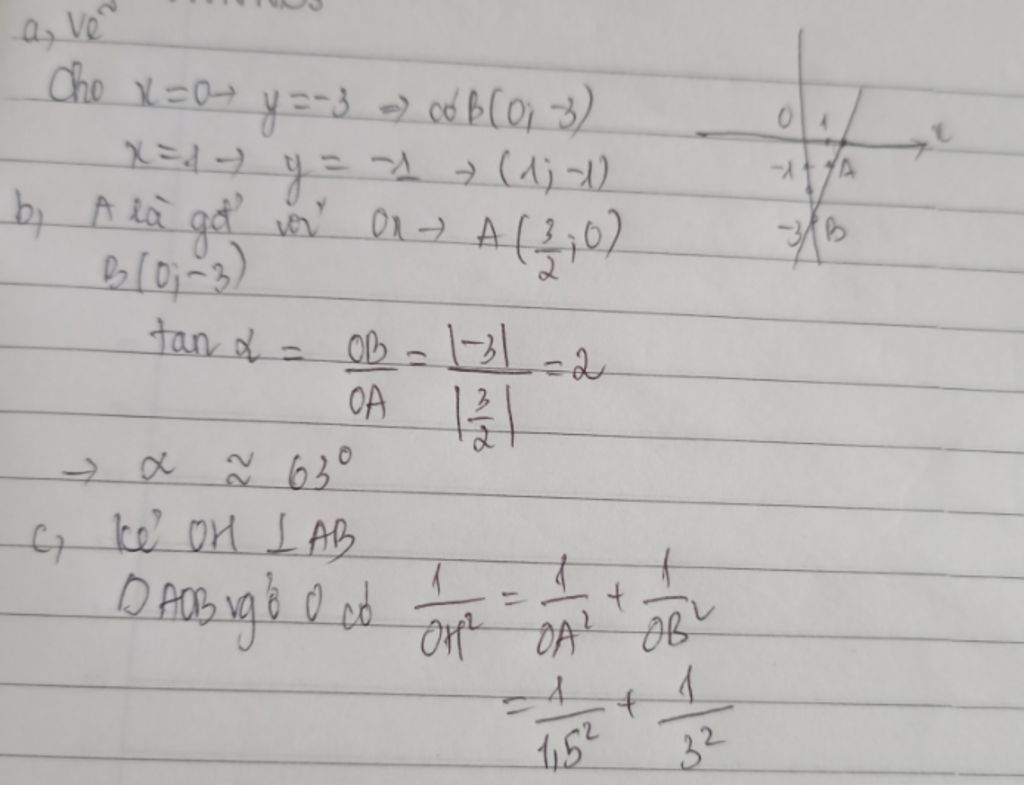 a, Vẽ
Cho x=0 → y=-3 ⇒ có B(0; -3)
x=1 → y = -1 → (1; -1)
b, A là gđ với Ox → A(3/2; 0)
B(0; -3)
tan α = OB/OA = |-3|/|3/2| = 2
→ α ≈ 63°
c, kẻ OH ⊥ AB
Δ AOB vg ở O có 1/OH² = 1/OA² + 1/OB²
= 1/1,5² + 1/3²
0 1 x
-1 A
-3 B